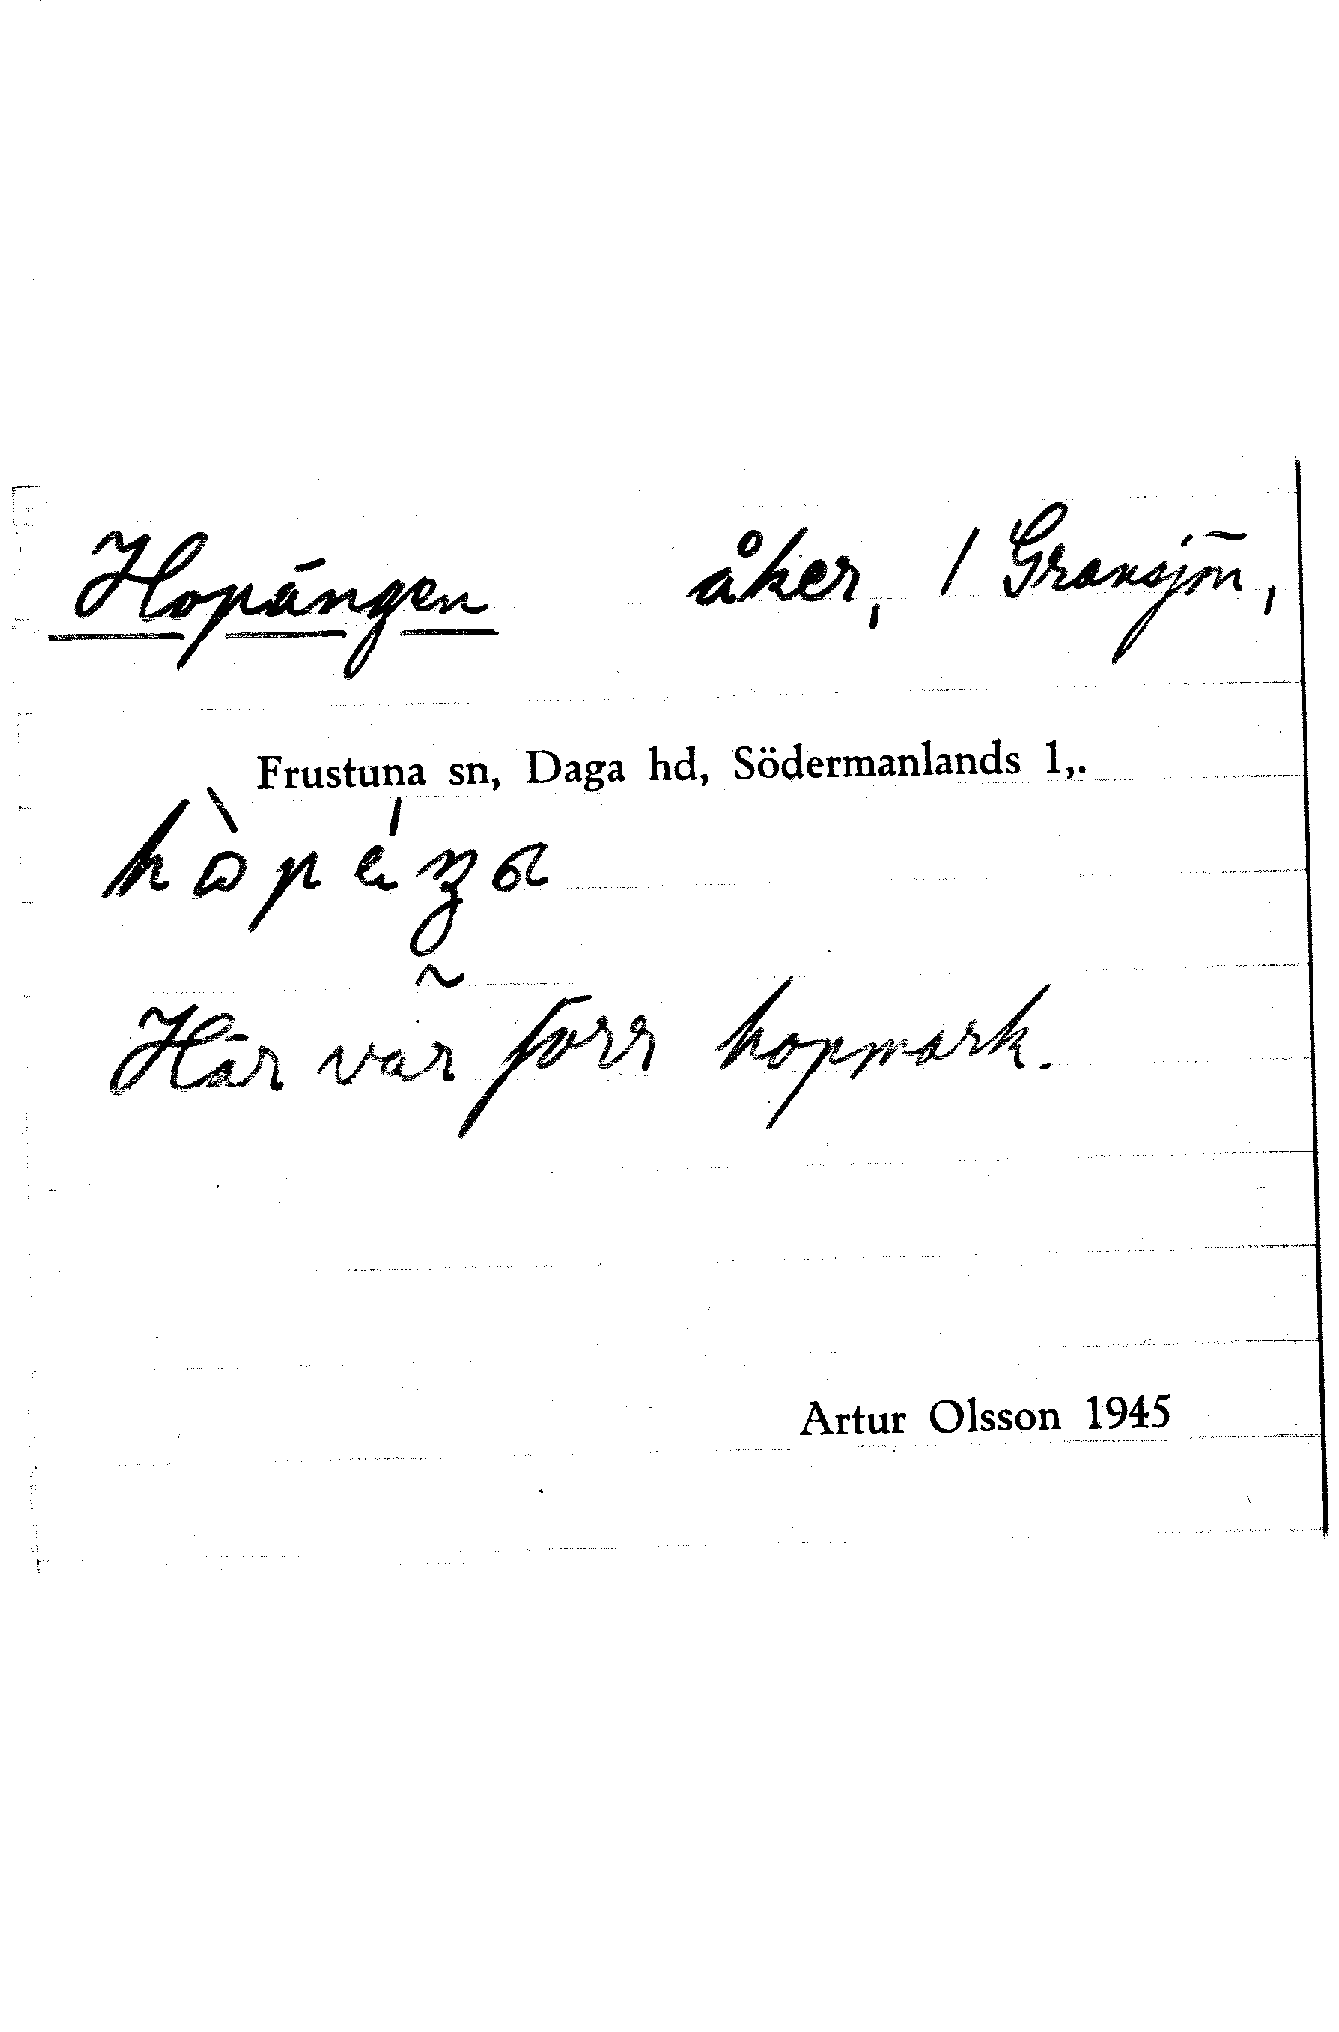 Hopängen åker, 1 Gransjön,
Frustuna sn, Daga hd, Södermanlands l,.
Här var förr hopmark.
Artur Olsson 1945